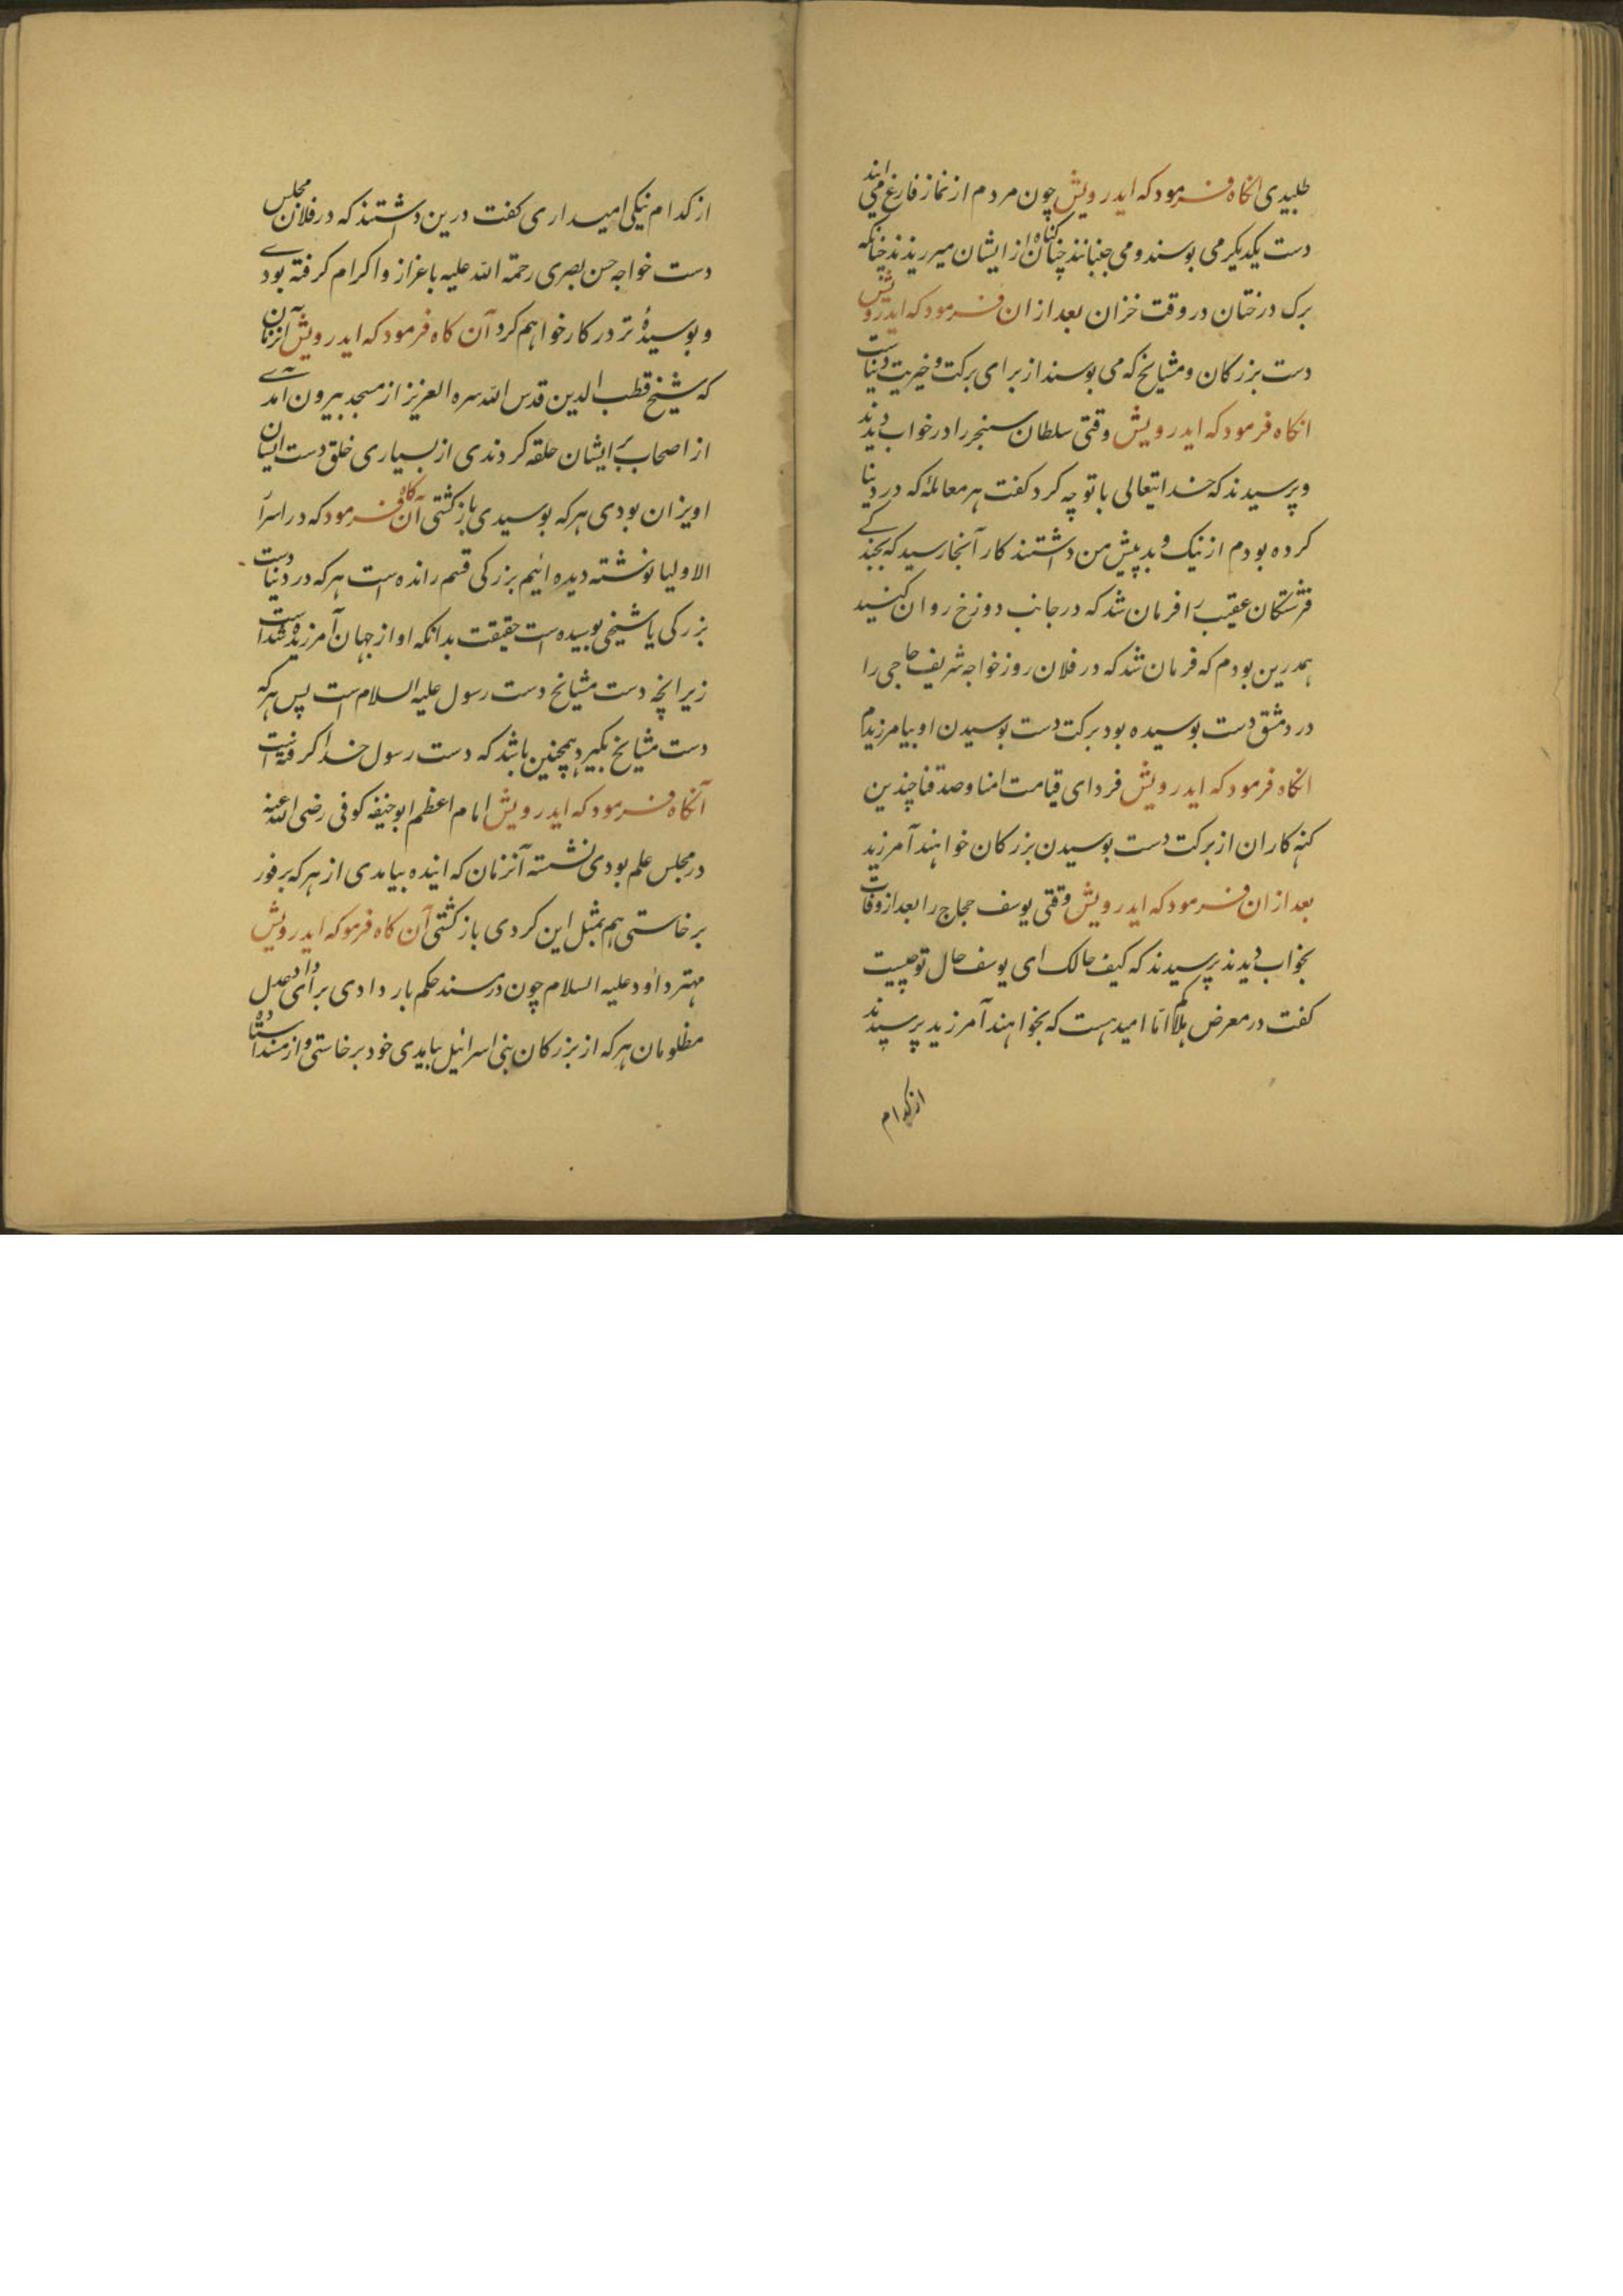 طلبیدی انکاه فرمود که ایدرویش چون مردم از نماز فارغ می ایند
دست یکدیکر می بوسند و می جنبانند چنان کناه از ایشان میریزند چنانکه
برک درختان در وقت خزان بعد ازان فرمود که ایدرویش
دست بزرکان و مشایخ که می بوسند از برای برکت و خیریت دنیاست
انکاه فرمود که ایدرویش وقتی سلطان سنجر را در خواب دیدند
و پرسیدند که خدایتعالی با تو چه کرد کفت هر معاملهٔ که در دنیا
کرده بودم از نیک و بد پیش من داشتند کار آنجا رسید که
فرشتکان عقیب را فرمان شد که در جانب دوزخ روان کنید
همدرین بودم که فرمان شد که در فلان روز خواجه شریف حاجی را
در دمشق دست بوسیده بود برکت دست بوسیدن او بیامرزیدم
انکاه فرمود که ایدرویش فردای قیامت امنا وصدقنا چندین
کنه کاران از برکت دست بوسیدن بزرکان خواهند آمرزید
بعد ازان فرمود که ایدرویش وقتی یوسف حجاج را بعد از وفات
بخواب دیدند پرسیدند که کیف حالک ای یوسف حال تو چیست
کفت در معرض هلاکم امّا امید هست که بخواهند آمرزید پرسیدند
از کدام
از کدام نیکی امیداری کفت درین داشتند که در فلان مجلس
دست خواجه حسن بصری رحمة الله علیه باعزاز و اکرام کرفته بودے
و بوسیدهٔ تر در کار خواهم کرد آن کاه فرمود که ایدرویش آنزمان
که شیخ قطب الدین قدس الله سره العزیز از مسجد بیرون آمدے
از اصحاب ایشان حلقه کردندی از بسیاری خلق دست ایشان
اویزان بودی هر که بوسیدی بازکشتی آن کاه فرمود که در اسرار
الاولیا نوشته دیده ائیم بزرکی قسم رانده است هر که در دنیا دست
بزرکی یا شیخی بوسیده است حقیقت بدانکه او از جهان آمرزیده شده است
زیرانچه دست مشایخ دست رسول علیه السلام است پس هر که
دست مشایخ بگیرد همچنین باشد که دست رسول خدا کرفته است
آنکاه فرمود که ایدرویش امام اعظم ابوحنیفه کوفی رضی الله عنه
در مجلس علم بودی نشسته آنزمان که اینده بیامدی از هر که بر فور
برخاستی هم بمثل این کردی بازکشتی آن کاه فرمو که ایدرویش
مهتر داود علیه السلام چون در مسند حکم بار دادی برای داد عدل
مظلومان هر که از بزرکان بنی اسرائیل بیامدی خود برخاستی و از مسند